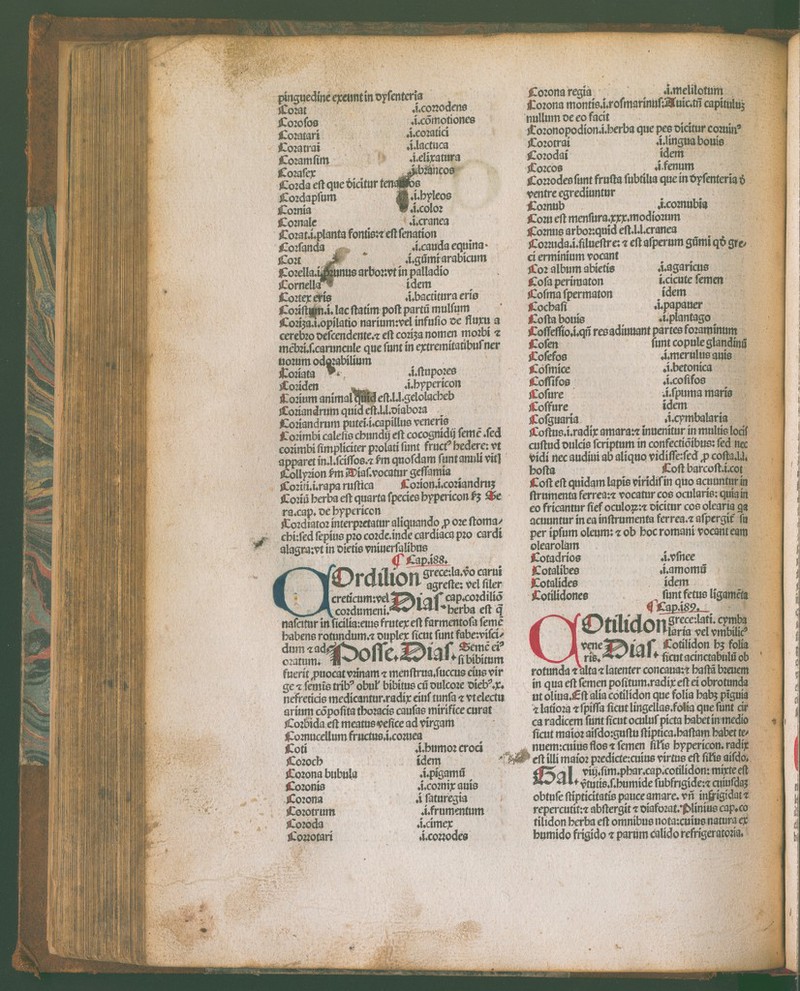 pinguedine exeunt in dysenteria
Corat .i.corrodens
Corofos .i.cõmotiones
Coratari .i.coratici
Coratrai .i.lactuca
Coramsim .i.elixatura
Corafex .i.brancos
Corda est que dicitur
Cordapsum .i.hyleos
Cornia .i.color
Cornale .i.cranea
Corat.i.planta fontis:⁊ est senation
Corsanda .i.cauda equina
Cort .i.gũmi arabicum
Corella.i. arbor:vt in palladio
Cornella idem
Cortex eris .i.bactitura eris
.i. lac statim post partũ mulsum
Coriza.i.opilatio narium:vel infusio de fluxu a
cerebro descendente.⁊ est coriza nomen morbi ⁊
mẽbri.s.caruncule que sunt in extremitatibus ner
uorum odorabilium
Coriata .i.stupores
Coriden .i.hypericon
Corium animal quid est.l.l.gelolacheb
Coriandrum quid est.l.l.diabora
Coriandrum putei.i.capillus veneris
Corimbi calefio chundij est cocognidij semẽ .sed
corimbi simpliciter prolati sunt fruct⁹ hedere: vt
apparet in.l.scissos.⁊ ẜm quosdam sunt anuli viti
Collyrion ẜm Dias.vocatur gessamia
Coriti.i.rapa rustica Corion.i.coriandruȝ
Coriũ herba est quarta species hypericon ẜȝ Se
ra.cap. de hypericon
Cordiator interpretatur aliquando ꝓ ore stoma⸗
chi:sed sepius pro corde.inde cardiaca pro cardi
alagra:vt in dietis vniuersalibus
¶ Cap.188.
COrdilion grece:la.ṽo carui
agreste: vel siler
creticum:vel Dias. cap.cordiliõ
cordumeni. herba est q̃
nascitur in sicilia:eius frutex est farmentosa semẽ
habens rotundum.⁊ duplex sicut sunt fabe:visci⸗
dum ⁊ ad
oratum. Posse. Dias. Semẽ ei⁹
si bibitum
fuerit ꝓuocat vrinam ⁊ menstrua.succus eius vir
ge ⁊ semis trib⁹ obul' bibitus cũ dulcore dieb⁹.x.
nefreticis medicantur.radix eius tunsa ⁊ vtelectu
arium cõposita thoracis causas mirifice curat
Corbida est meatus vesice ad virgam
Cornucellum fructus.i.cornea
Coti .i.humor eroci
Coroch idem
Corona bubula .i.pigamũ
Coronis .i.cornix auis
Corona .i saturegia
Corotrum .i.frumentum
Coroda .i.cimex
Corrotari .i.corrodes
Corona regia .i.melilotum
Corona montis.i.rosmarinus:Auic.tñ capituluȝ
nullum de eo facit
Coronopodion.i.herba que pes dicitur coruin⁹
Corotrai .i.lingua bouis
Corodai idem
Corcos .i.fenum
Corrodes sunt frusta subtilia que in dysenteria ð
ventre egrediuntur
Cornub .i.cornubia
Coru est mensura.xxx.modiorum
Cornus arbor:quid est.l.l.cranea
Corruda.i.siluestre: ⁊ est asperum gũmi qð gre⸗
ci erminium vocant
Cor album abietis .i.agaricus
Cosa perimaton .i.cicute semen
Cosma spermaton idem
Cochasi .i.papauer
Costa bouis .i.plantago
Cossessio.i.qñ res adiuuant partes foraminum
Cosen sunt copule glandinũ
Cosefos .i.merulus auis
Cosmice .i.betonica
Cossifos .i.cosifos
Cosure .i.spuma maris
Cossure idem
Cosguaria .i.cymbalaria
Costus.i.radix amara:⁊ inuenitur in multis locis
custud dulcis scriptum in confectiõibus: sed nec
vidi nec audiui ab aliquo vidisse:sed ꝓ costa.l.l.
hosta Cost barcost.i.cot
Cost est quidam lapis viridis in quo acuuntur in
strumenta ferrea:⁊ vocatur cos ocularis: quia in
eo fricantur sief oculoꝝ:⁊ dicitur cos olearia qa
acuuntur in ea instrumenta ferrea.⁊ aspergit' su
per ipsum oleum: ⁊ ob hoc romani vocant eam
olearolam
Cotadrios .i.vsnee
Cotalibes .i.amomũ
Cotalides idem
Cotilidones sunt fetus ligamẽta
¶ Cap.189.
COtilidon grece:lati. cymba
laria vel vmbilic⁹
vene Dias. Cotilidon hȝ folia
ris. sicut acinetabulũ ob
rotunda ⁊ alta ⁊ latenter concaua:⁊ hastã breuem
in qua est semen positum.radix est ei obrotunda
ut oliua.Est alia cotilidon que folia habȝ piguia
⁊ latiora ⁊ spissa sicut lingellas.folia que sunt cir
ca radicem sunt sicut oculus picta habet in medio
sicut maior aisdo:gustu stiptica.hastam habet te⸗
nuem:cuius flos ⁊ semen sil'is hypericon. radix
est illi maior predicte:cuius virtus est sil'is aisdo.
Gal. viij.sim.phar.cap.cotilidon: mixte est
ṽtutis.s.humide subfrigide:⁊ cuiusdaȝ
obtuse stipticitatis pauce amare. vñ infrigidat ⁊
repercutit:⁊ abstergit ⁊ diaforat. Plinius cap.co
tilidon herba est omnibus nota:cuius natura ex
humido frigido ⁊ parum calido refrigeratoria.